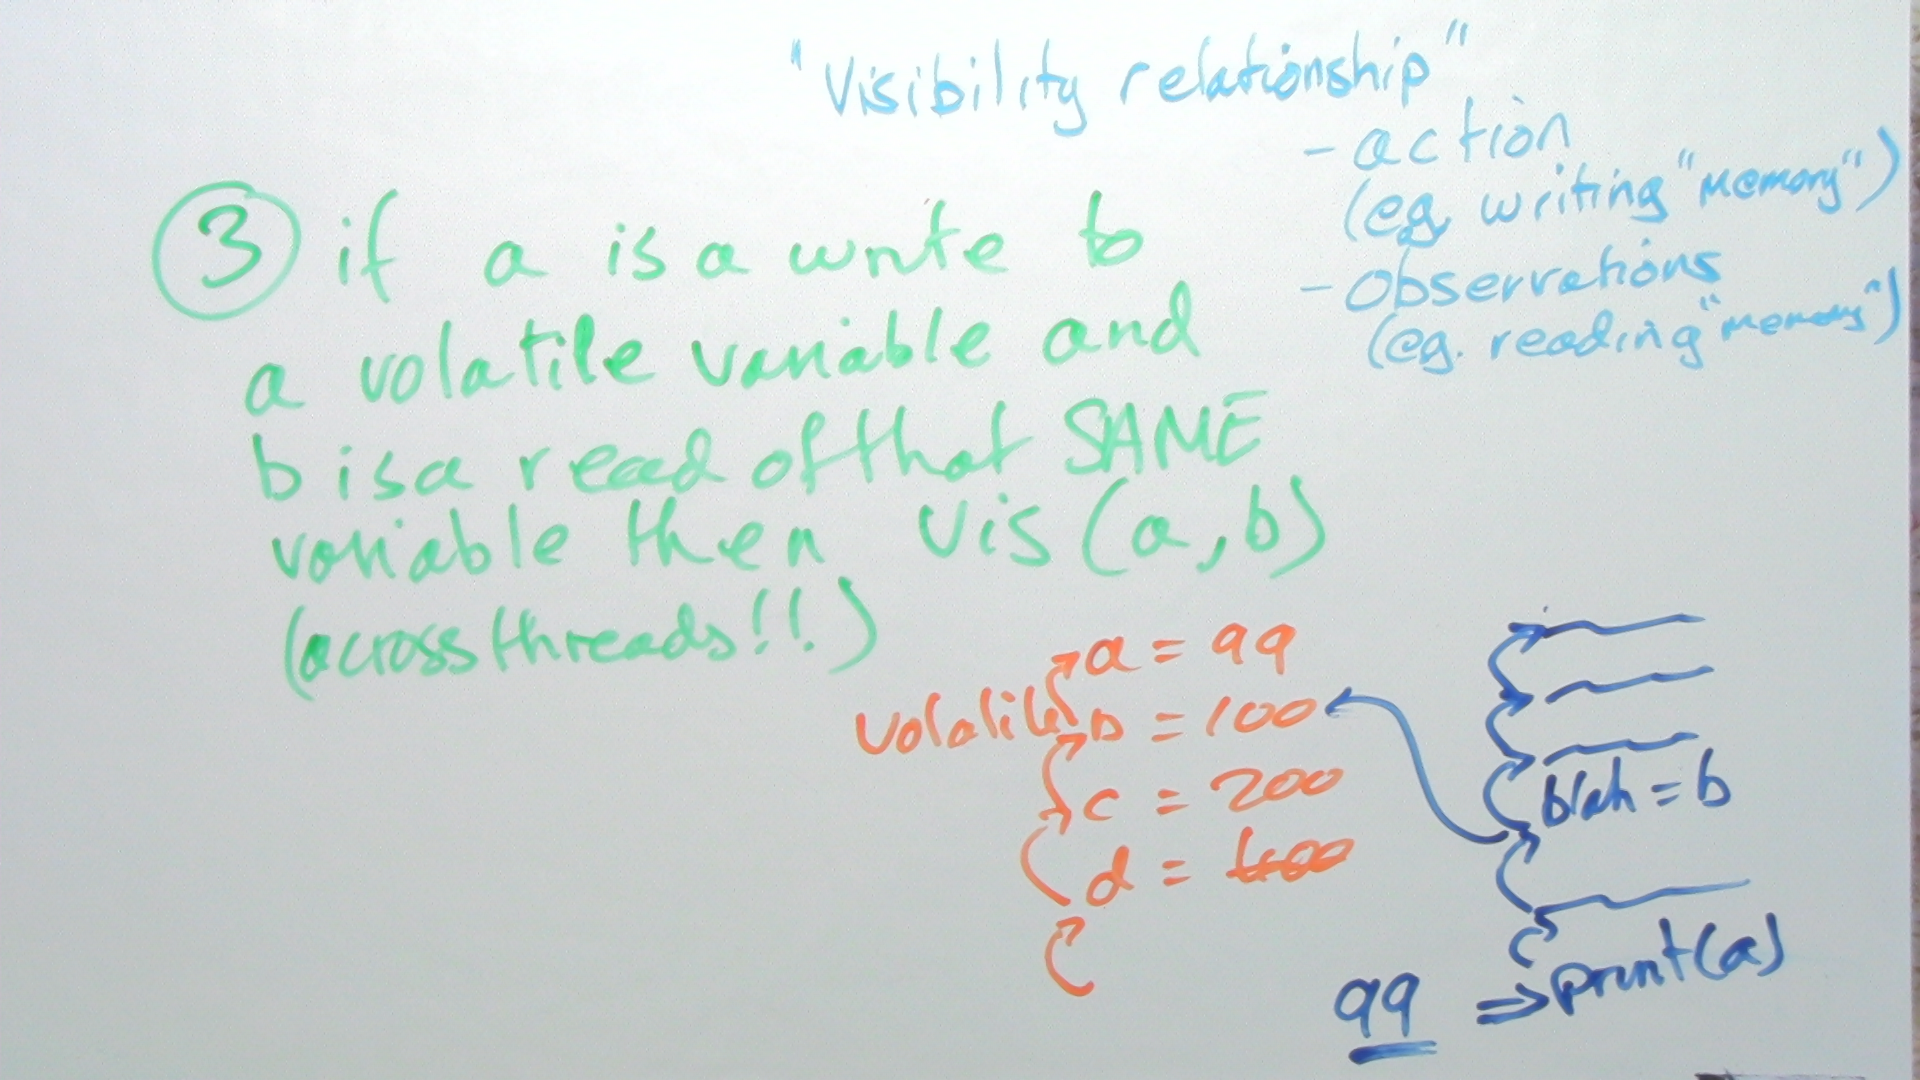 "Visibility relationship"
- action
(eg. writing "memory")
- observations
(eg. reading "memory")
③ if a is a write to
a volatile variable and
b is a read of that SAME
variable then vis(a,b)
(across threads!!)
a = 99
volatile b = 100
c = 200
d = 400
blah = b
99 ⇒ print(a)